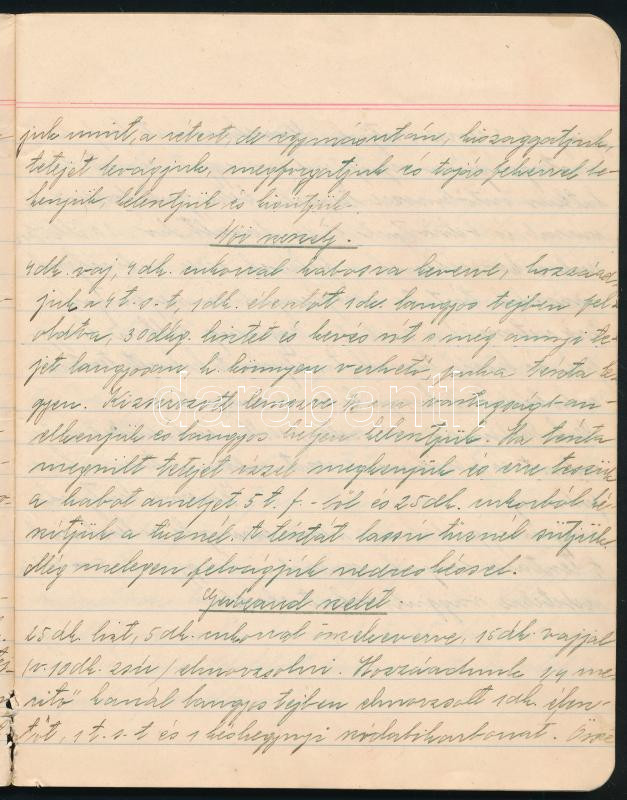 juk mint, a rétest, de egymásután, kiszaggatjuk,
tetejét levágjuk, megforgatjuk és tojás fehérrel be-
kenjük, kelentjük és kisütjük.
Női szeszély.
4 dk. vaj, 4 dk. cukorral habosra keverve, hozzáad
juk a 4 t. s. t, 1 dk. élesztőt 1 dc. langyos tejben fel
oldva, 30 dkg. lisztet és kevés sót s még annyi te-
jet langyosan h. könnyen verhető, puha tészta le
gyen. Kizsírozott lemezre vastagságban
elkenjük és langyos helyen kelentjük. Ha tészta
megnőtt tetejét ízzel megkenjük és erre tesszük
a habot amelyet 5 t. f.-ből és 25 dk. cukorból ké-
szítjük a tűznél. A tésztát lassú tűznél sütjük.
Még melegen felvágjuk nedves késsel.
szelet
25 dk. liszt, 5 dk. cukorral összekeverve, 15 dk. vajjal
/v. 10 dk. zsír/ elmorzsolni. Hozzáadunk egy me-
rítő kanál langyos tejben elmorzsolt 1 dk. élesz-
tőt, 1 t. s. t és 1 késhegynyi szódabikarbonát. Össze
darabanth